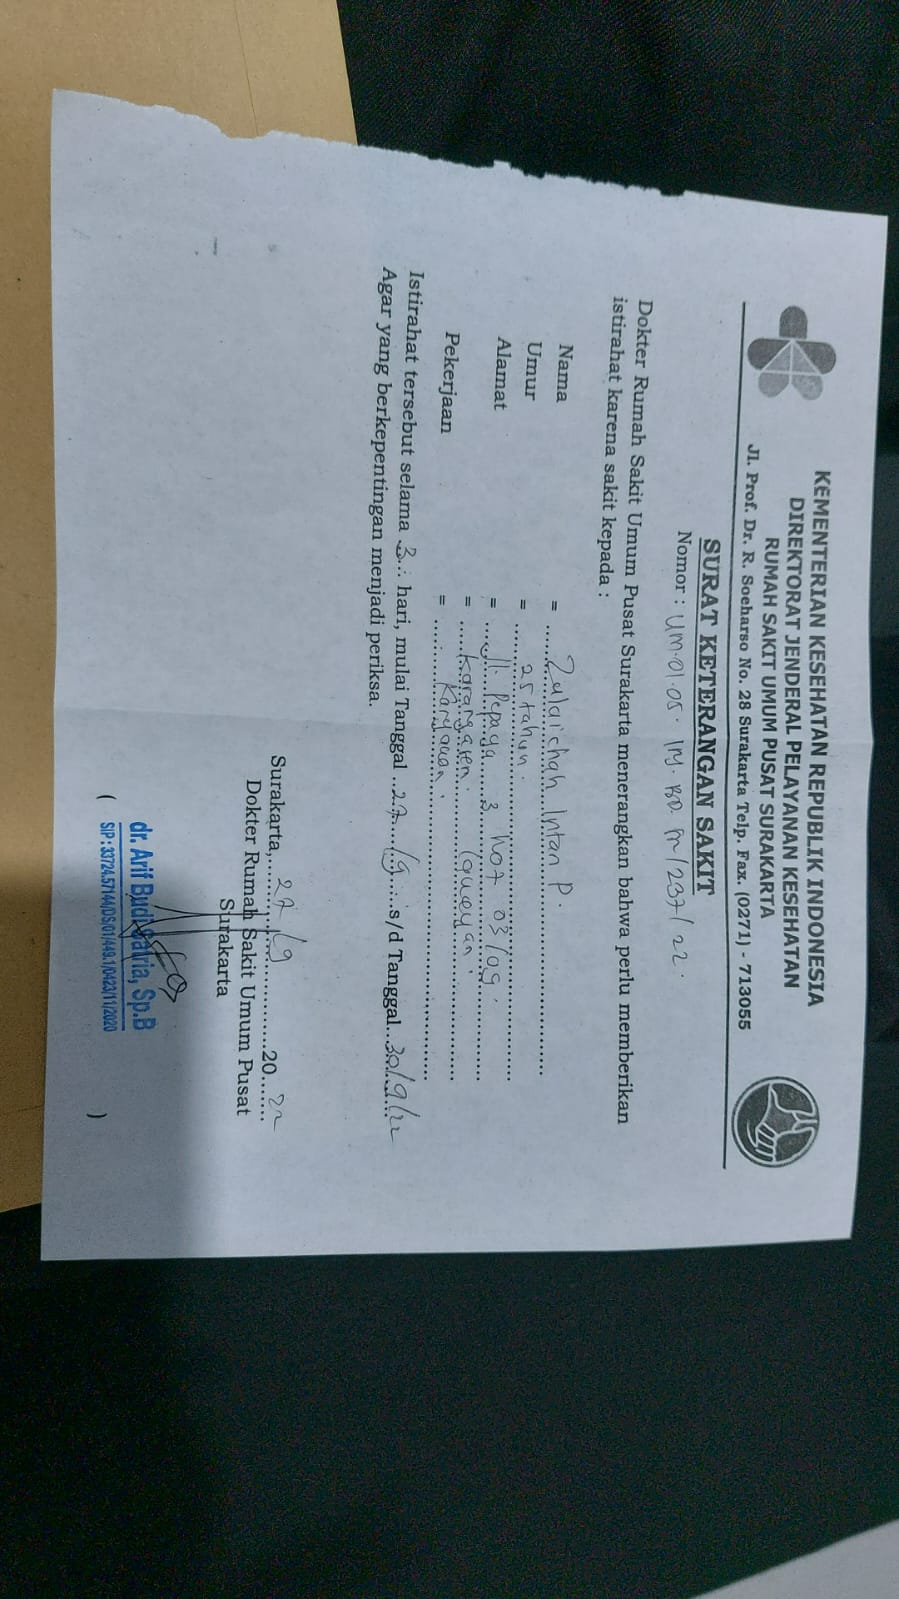 KEMENTERIAN KESEHATAN REPUBLIK INDONESIA
DIREKTORAT JENDERAL PELAYANAN KESEHATAN
RUMAH SAKIT UMUM PUSAT SURAKARTA
Jl. Prof. Dr. R. Soeharso No. 28 Surakarta Telp. Fax. (0271) - 713055
SURAT KETERANGAN SAKIT
Nomor : UM.01.05. /237/22.
Dokter Rumah Sakit Umum Pusat Surakarta menerangkan bahwa perlu memberikan
istirahat karena sakit kepada :
Nama = Zulaichah Intan P.
Umur = 25 tahun.
Alamat = Jl. Pepaya 3 No 7 03/09.
= Karangasem. Laweyan.
Pekerjaan = Karyawan.
Istirahat tersebut selama 3 hari, mulai Tanggal 27/9 s/d Tanggal 30/9/22
Agar yang berkepentingan menjadi periksa.
Surakarta, 27/9 20 22
Dokter Rumah Sakit Umum Pusat
Surakarta
dr. Arif Budi Satria, Sp.B
( SIP : 33724.57144/DS/01/449.1/0423/11/2020 )